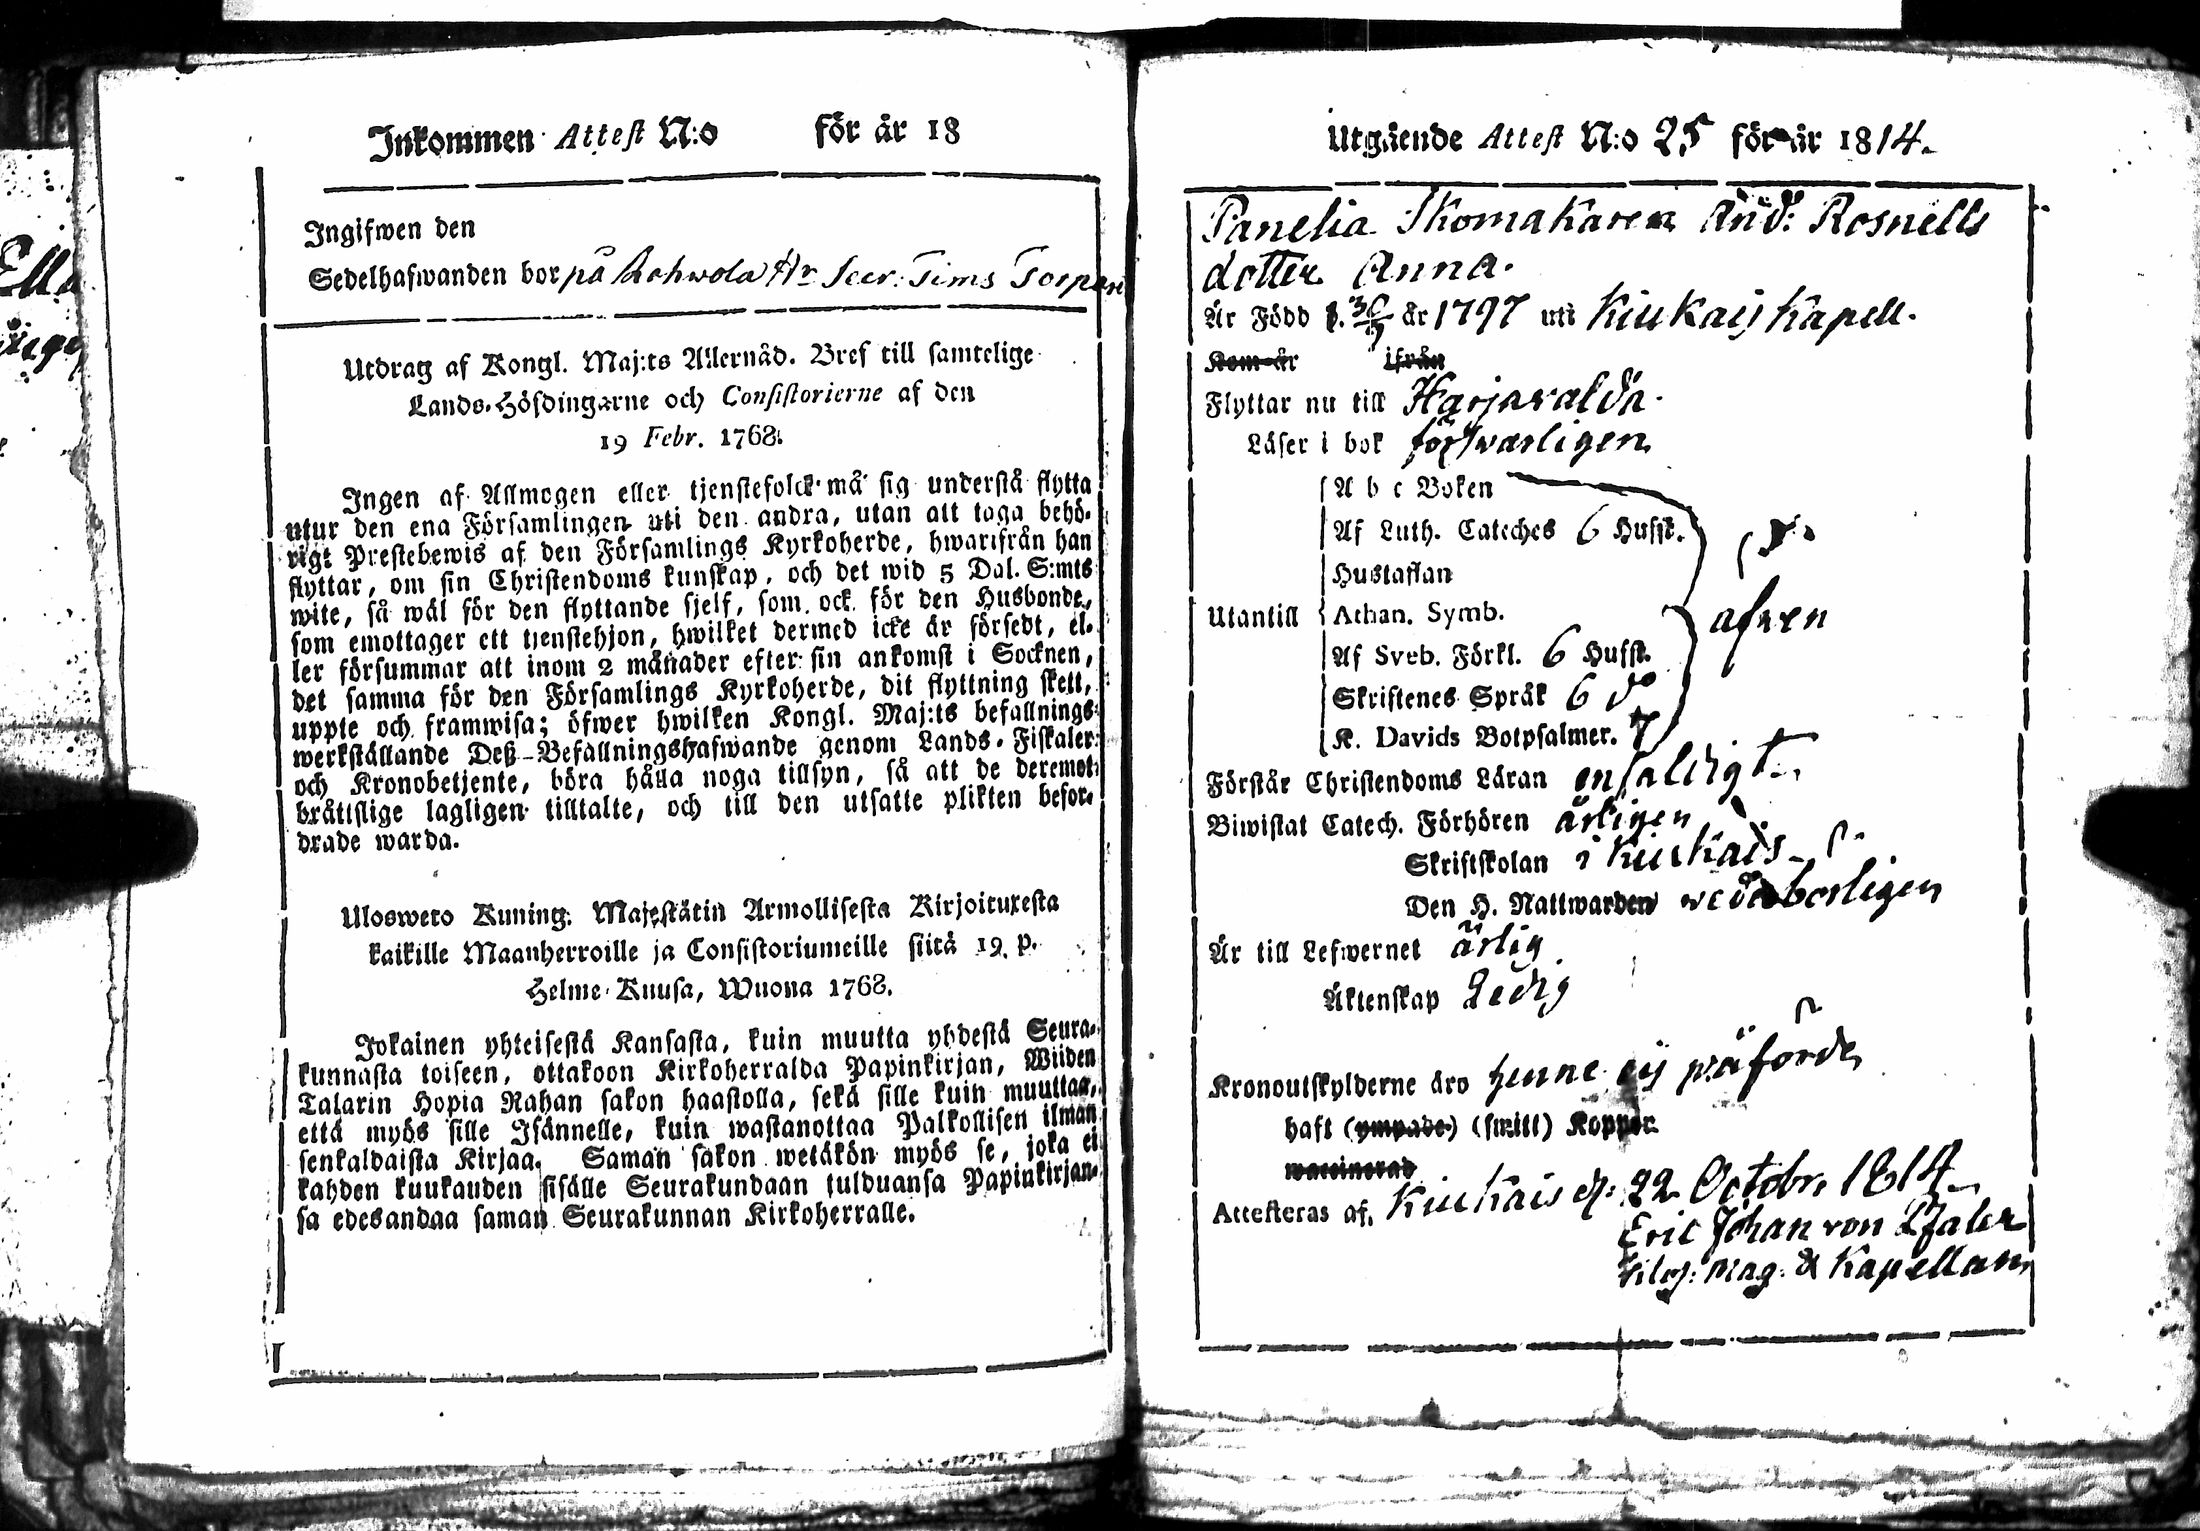 Inkommen Attest N:o för år 18
Ingifwen den
Sedelhafwanden bor på Hr Secr. Tims Torpare
Utdrag af Kongl. Maj:ts Allernåd. Bref till samtelige
Lands-Höfdingarne och Consistorierne af den
19 Febr. 1768.
Ingen af Allmogen eller tjenstefolck må sig understå flytta
utur den ena Församlingen uti den andra, utan att taga behö-
rigt Prestebewis af den Församlings Kyrkoherde, hwarifrån han
flyttar, om sin Christendoms kunskap, och det wid 5 Dal. S:mts
wite, så wäl för den flyttande sjelf, som ock för den Husbonde,
som emottager ett tjenstehjon, hwilket dermed icke är försedt, el-
ler försummar att inom 2 månader efter sin ankomst i Socknen,
det samma för den Församlings Kyrkoherde, dit flyttning skett,
uppte och framwisa; öfwer hwilken Kongl. Maj:ts befallnings
werkställande Deß-Befallningshafwande genom Lands-Fiskaler
och Kronobetjente, böra hålla noga tillsyn, så att de deremot
bråttslige lagligen tilltalte, och till den utsatte plikten befor-
drade warda.
Ulosweto Kuning: Majestätin Armollisesta Kirjoituxesta
kaikille Maanherroille ja Consistoriumeille siitä 19. p.
Helme-Kuusa, Wuona 1768.
Jokainen yhteisestä Kansasta, kuin muutta yhdestä Seura-
kunnasta toiseen, ottakoon Kirkoherralda Papinkirjan, Wiiden
Talarin Hopia Rahan sakon haastolla, sekä sille kuin muuttaa,
että myös sille Isännelle, kuin wastanottaa Palkollisen ilman
senkaldaista Kirjaa. Saman sakon wetäkön myös se, joka ei
kahden kuukauden sisälle Seurakundaan tulduansa Papinkirjan-
sa edesandaa saman Seurakunnan Kirkoherralle.
Utgående Attest N:o 25 för år 1814.
Panelia Skomakaren And: Rosnells
dotter Anna.
Är Född d. 30/7 år 1797 uti Kiukais Kapell.
Kom år ifrån
Flyttar nu till Harjavalda.
Läser i bok försvarligen
A b c Boken
Af Luth. Cateches 6 Hufst.
Hustaflan
Utantill Athan. Symb. afven
Af Sveb. Förkl. 6 Hufst.
Skriftenes Språk 6 do
K. Davids Botpsalmer. 7
Förstår Christendoms Läran enfaldigt
Biwistat Catech. Förhören årligen
Skriftskolan i Kiukais
Den H. Nattwarden wederborligen
Är till Lefwernet ärlig
Äktenskap Ledig
Kronoutskylderne äro henne ej påförde
haft (ympade) (smitt) Koppor
waccinerad
Attesteras af. Kiukais d. 22 Octobr. 1814
Eric Johan von Pfaler
Filos: Mag. & Kapellan